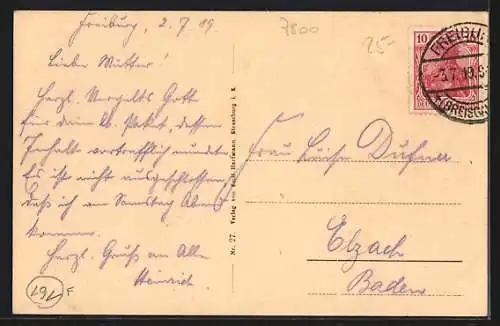 Freiburg, 2.7.19.
Liebe Mutter!
Herzl. Vergelts Gott
für dein l. Paket, dessen
Inhalt vortrefflich mundete.
Es ist nicht ausgeschlossen,
daß ich am Samstag Abend
komme.
Herzl. Gruß an Alle
Heinrich.
191 F
Nr. 27. Verlag von Hartmann, Strassburg i. E.
7800
25-
10
FREIBUR
-3.7.19.8-
(BREISGAU
Frau Luise Dufner
Elzach
Baden